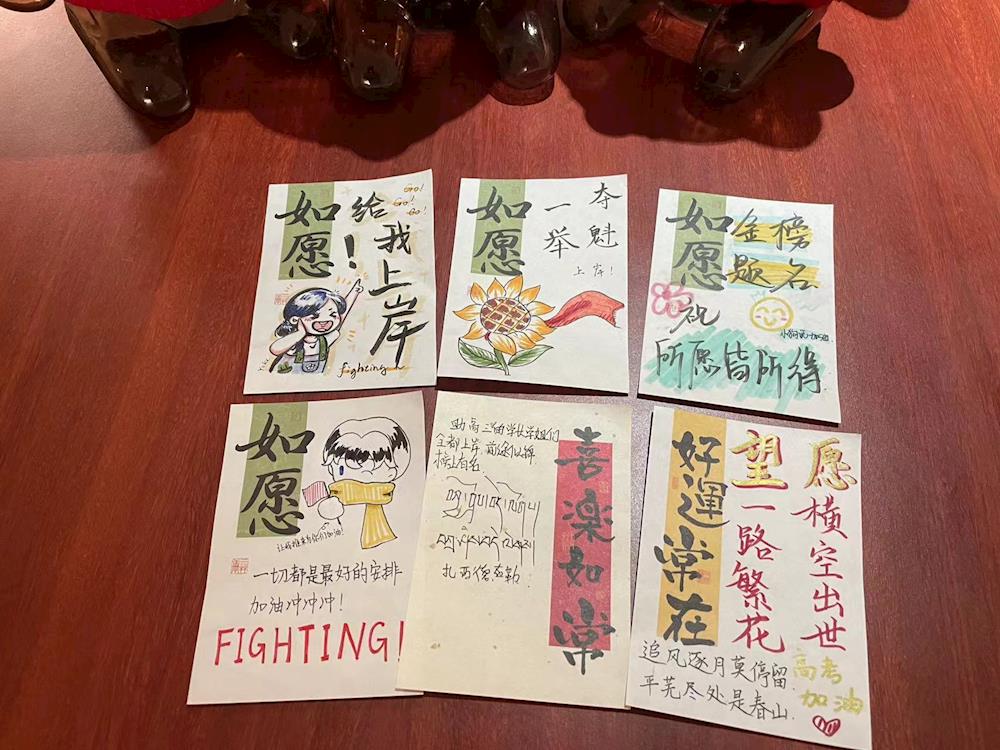 如愿
给
!
我上岸
Go!
Go!
Go!
fighting
如愿
夺魁
一举
上岸!
如愿
金榜
题名
祝
所愿皆所得
如愿
一切都是最好的安排
加油冲冲冲!
FIGHTING!
助高三的学长学姐们
全都上岸 前途似锦
榜上有名
喜樂如常
好運常在
愿横空出世
望一路繁花
追风逐月莫停留
平芜尽处是春山.
高考
加油